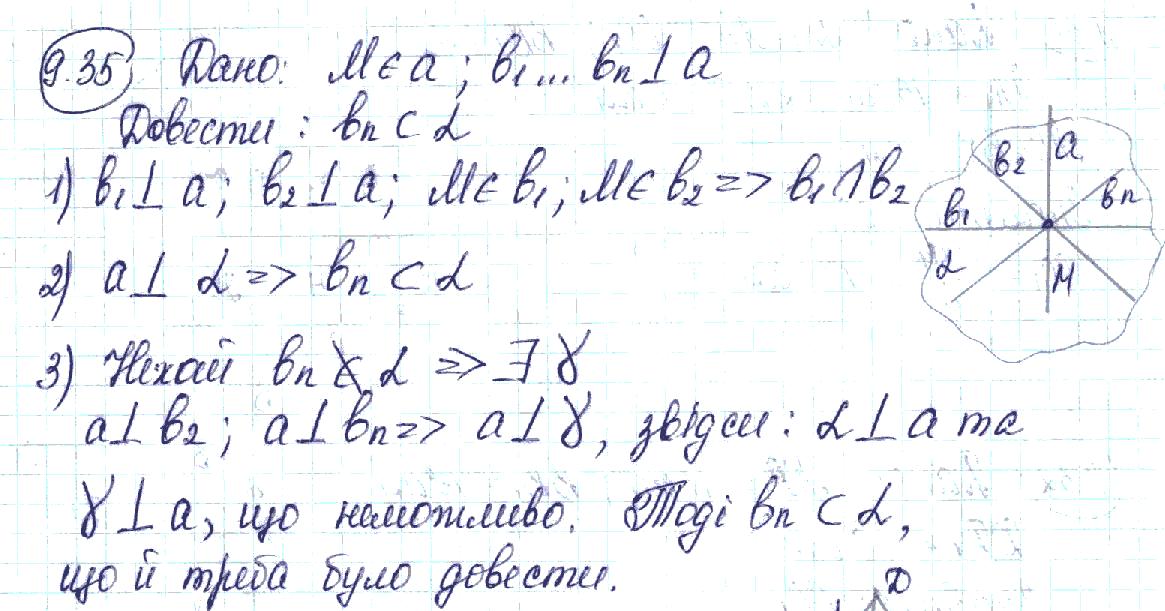 9.35 Дано: M∈a; b₁...bₙ⊥a
Довести: bₙ⊂α
1) b₁⊥a; b₂⊥a; M∈b₁; M∈b₂ => b₁∩b₂
2) a⊥α => bₙ⊂α
3) Нехай bₙ⊄α => ∃γ
a⊥b₂; a⊥bₙ => a⊥γ, звідси: α⊥a та
γ⊥a, що неможливо. Тоді bₙ⊂α,
що й треба було довести.
a
b₂
bₙ
b₁
α
M
D